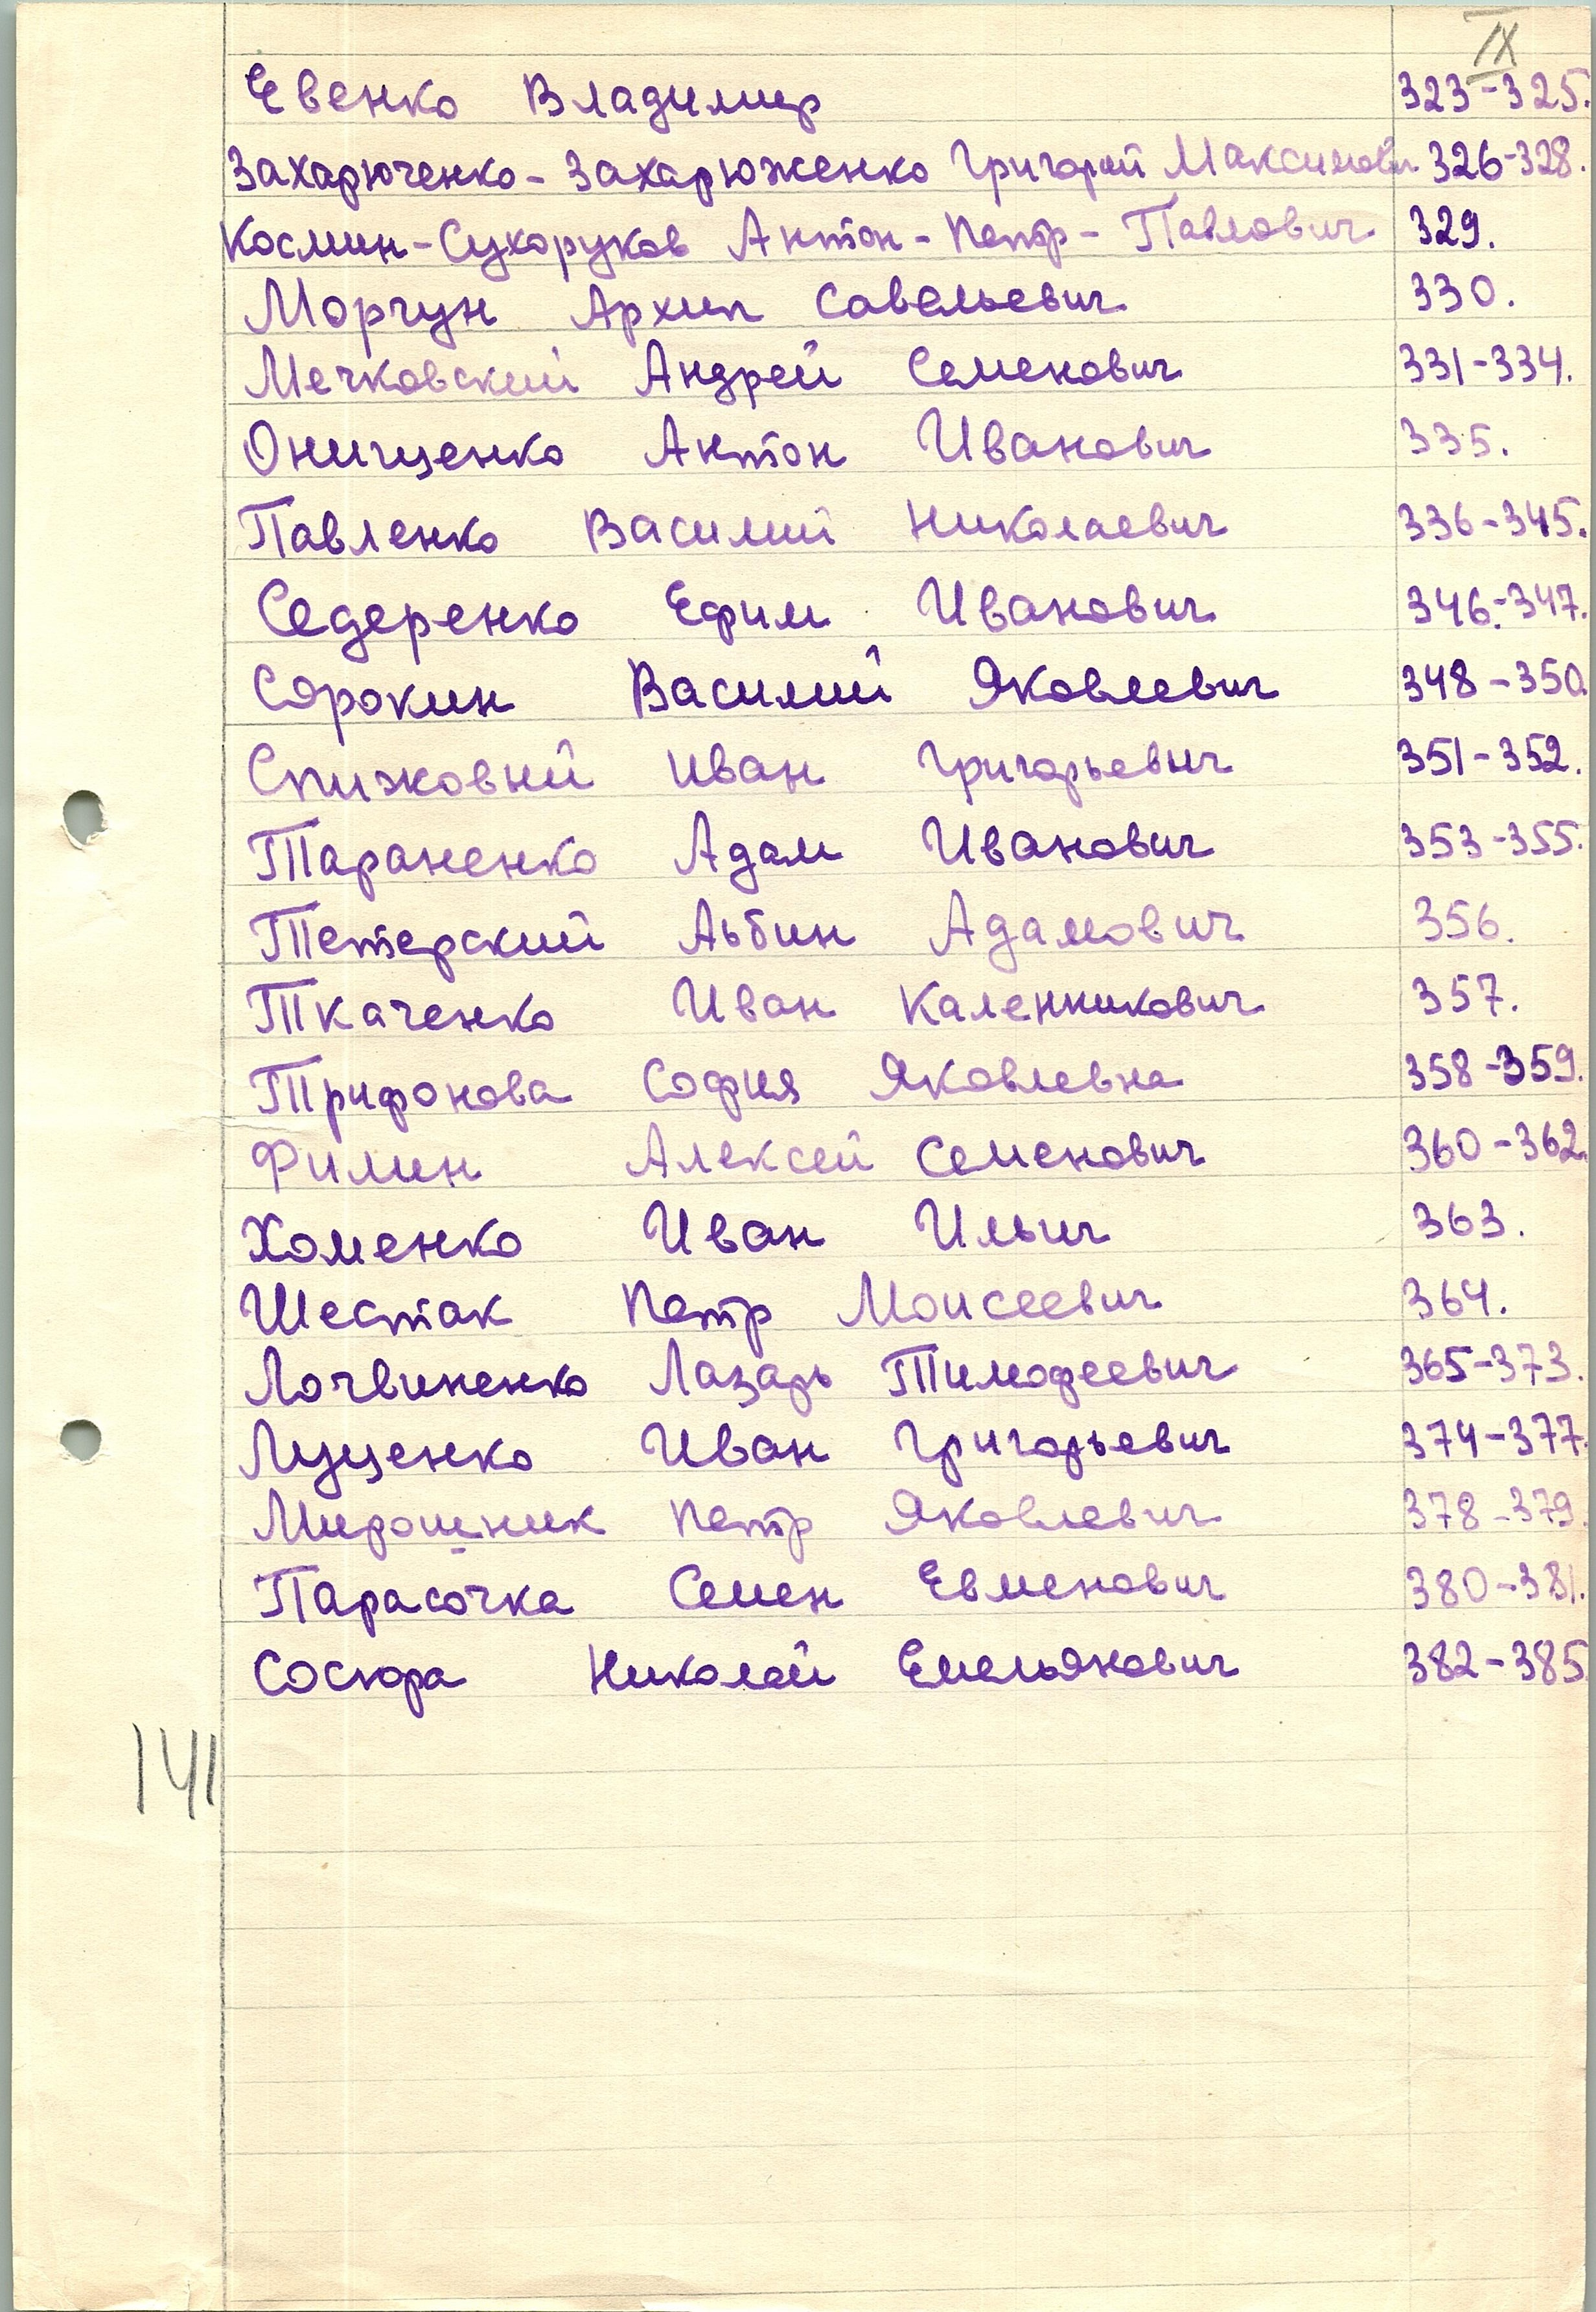 IX
Евенко Владимир 323-325.
Захарюченко - Захарюженко Григорий Максимови 326-328.
Космин-Сухоруков Антон-Петр-Павлович 329.
Моргун Архип Савельевич 330.
Мечковский Андрей Семенович 331-334.
Онищенко Антон Иванович 335.
Павленко Василий Николаевич 336-345.
Седеренко Ефим Иванович 346-347.
Сорокин Василий Яковлевич 348-350.
Спижовий Иван Григорьевич 351-352.
Тараненко Адам Иванович 353-355.
Тетерский Аьбин Адамович 356.
Ткаченко Иван Каленникович 357.
Трифонова София Яковлевна 358-359.
Филин Алексей Семенович 360-362.
Хоменко Иван Ильич 363.
Шестак Петр Моисеевич 364.
Лочвиненко Лазарь Тимофеевич 365-373.
Луценко Иван Григорьевич 374-377.
Мирошник Петр Яковлевич 378-379.
Парасочка Семен Евменович 380-381.
Сосюра Николай Емельянович 382-385
141